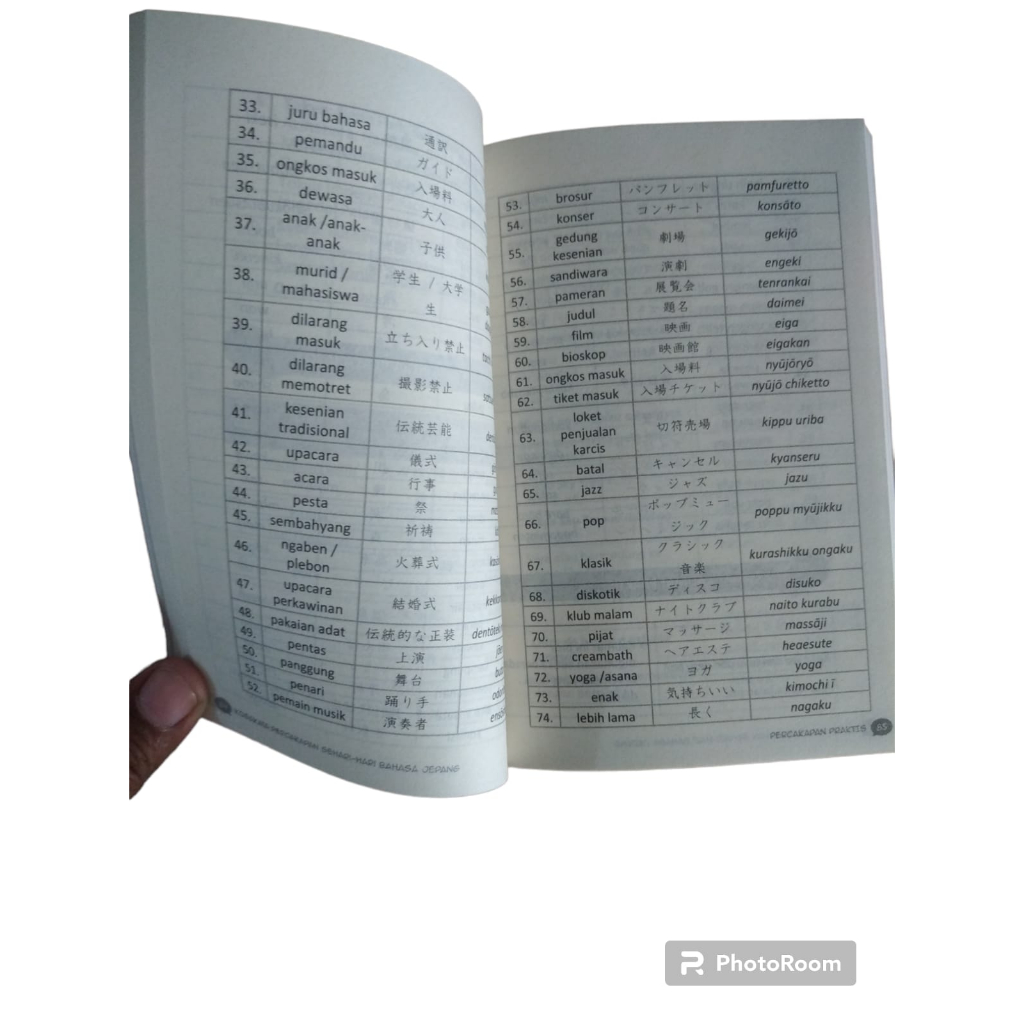 33. juru bahasa 通訳
34. pemandu ガイド
35. ongkos masuk 入場料
36. dewasa 大人
37. anak /anak-
anak 子供
38. murid / 学生 / 大学
mahasiswa 生
39. dilarang
masuk 立ち入り禁止
40. dilarang
memotret 撮影禁止
41. kesenian
tradisional 伝統芸能
42. upacara 儀式
43. acara 行事
44. pesta 祭
45. sembahyang 祈祷
46. ngaben /
plebon 火葬式
47. upacara
perkawinan 結婚式
48. pakaian adat 伝統的な正装
49. pentas 上演
50. panggung 舞台
51. penari 踊り手
52. pemain musik 演奏者
PERCAKAPAN SEHARI-HARI BAHASA JEPANG
53. brosur パンフレット pamfuretto
54. konser コンサート konsāto
55. gedung
kesenian 劇場 gekijō
56. sandiwara 演劇 engeki
57. pameran 展覧会 tenrankai
58. judul 題名 daimei
59. film 映画 eiga
60. bioskop 映画館 eigakan
61. ongkos masuk 入場料 nyūjōryō
62. tiket masuk 入場チケット nyūjō chiketto
63. loket
penjualan
karcis 切符売場 kippu uriba
64. batal キャンセル kyanseru
65. jazz ジャズ jazu
66. pop ポップミュー
ジック poppu myūjikku
67. klasik クラシック
音楽 kurashikku ongaku
68. diskotik ディスコ disuko
69. klub malam ナイトクラブ naito kurabu
70. pijat マッサージ massāji
71. creambath ヘアエステ heaesute
72. yoga /asana ヨガ yoga
73. enak 気持ちいい kimochi ī
74. lebih lama 長く nagaku
PERCAKAPAN PRAKTIS 85
PhotoRoom